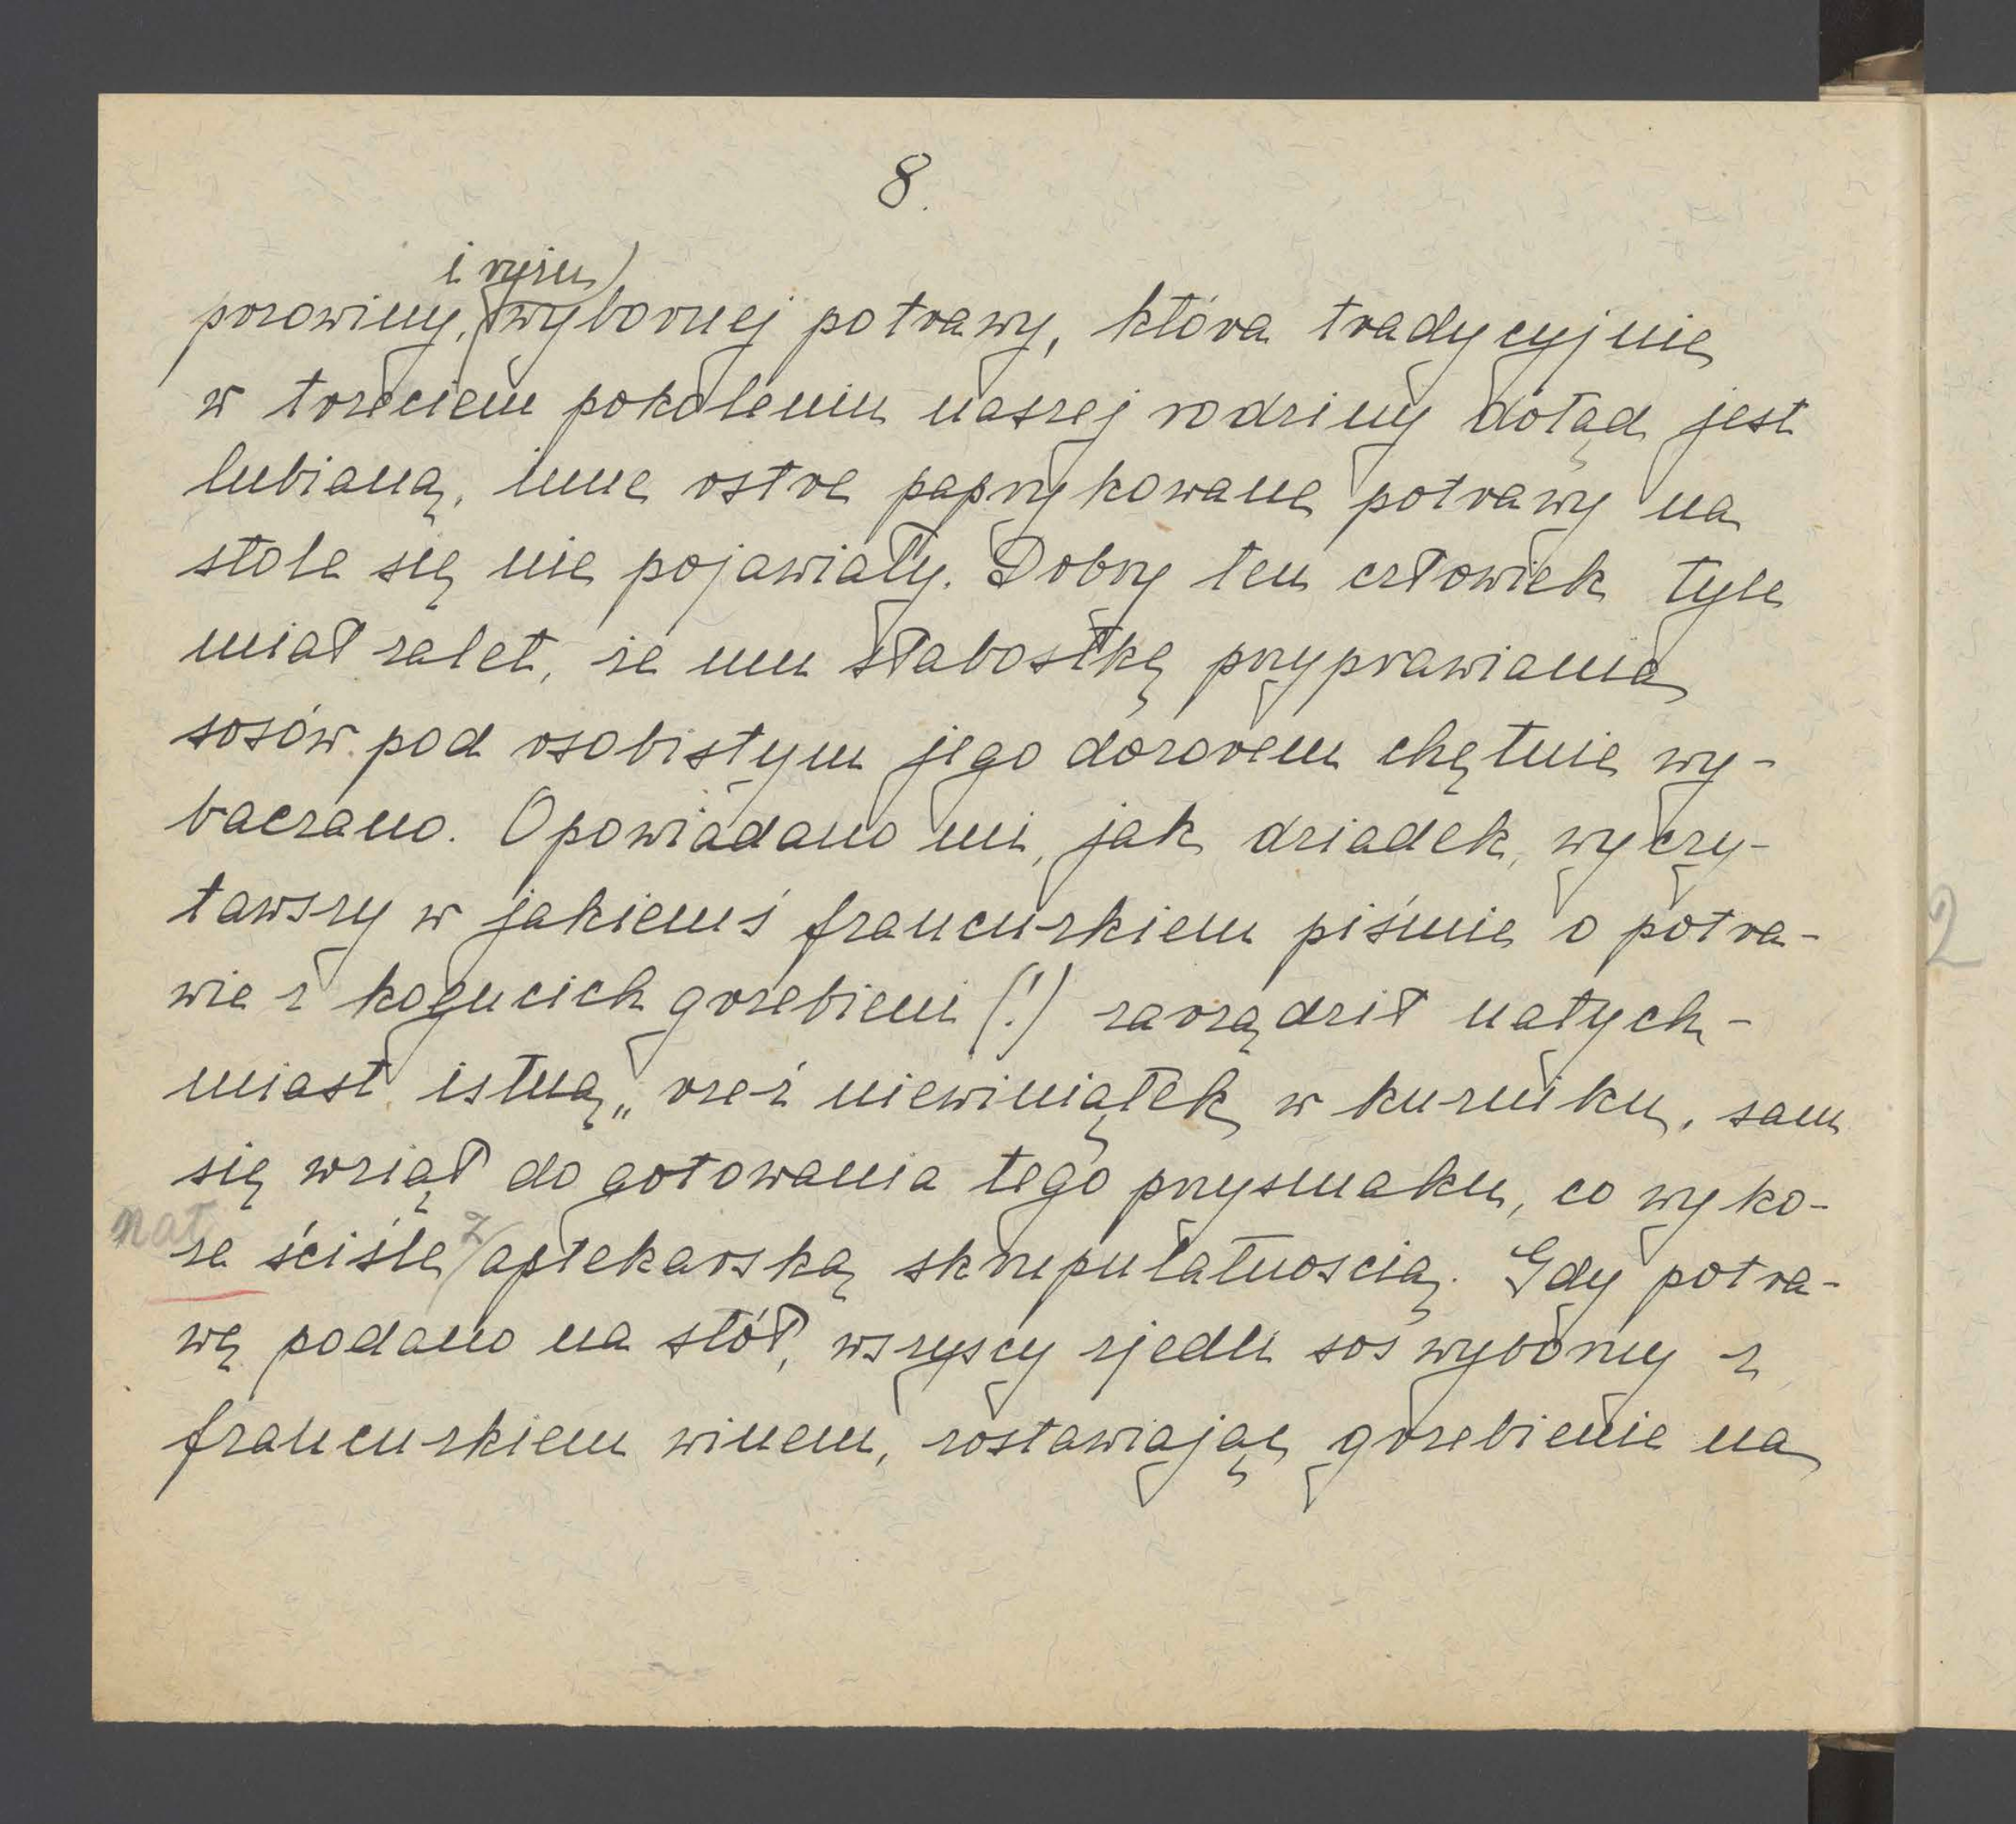 8.
i ryżu)
prowiny, wybornej potrawy, która tradycyjnie
w trzeciem pokoleniu naszej rodziny dotąd jest
lubianą, inne ostre paprykowane potrawy na
stole się nie pojawiały. Dobry ten człowiek tyle
miał zalet, że mu słabostkę przyprawiania
sosów pod osobistym jego dozorem chętnie wy-
baczano. Opowiadano mi, jak dziadek, wyczy-
tawszy w jakiemś francuzkiem piśmie o potra-
wie z kogucich grzebieni (!) zarządził natych-
miast istną „rzeź niewiniątek w kurniku, sam
się wziął do gotowania tego przysmaku, co wyko-
nał
ze ściśle z aptekarską skrupulatnoscią. Gdy potra-
wę podano na stół, wszyscy zjedli sos wyborny z
francuzkiem winem, zostawiając grzebienie na
2